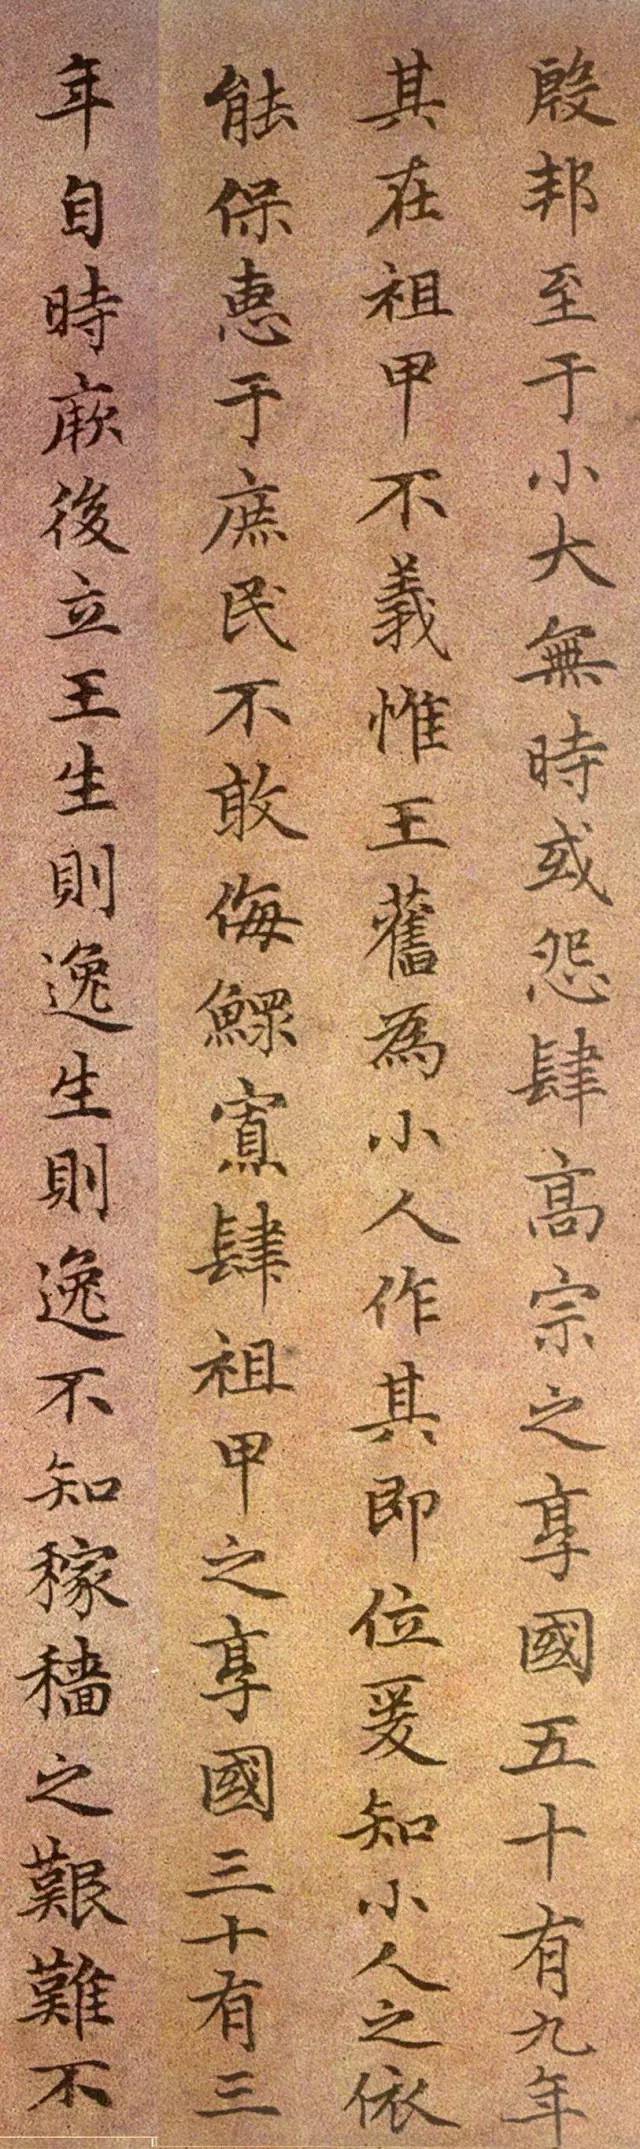 殷邦至于小大無時或怨肆高宗之享國五十有九年
其在祖甲不義惟王舊為小人作其即位爰知小人之依
能保惠于庶民不敢侮鰥寡肆祖甲之享國三十有三
年自時厥後立王生則逸生則逸不知稼穡之艱難不